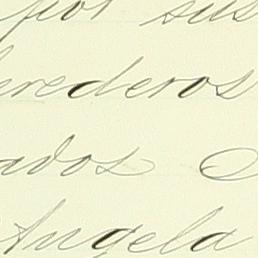 por sus
herederos
ados
Angela